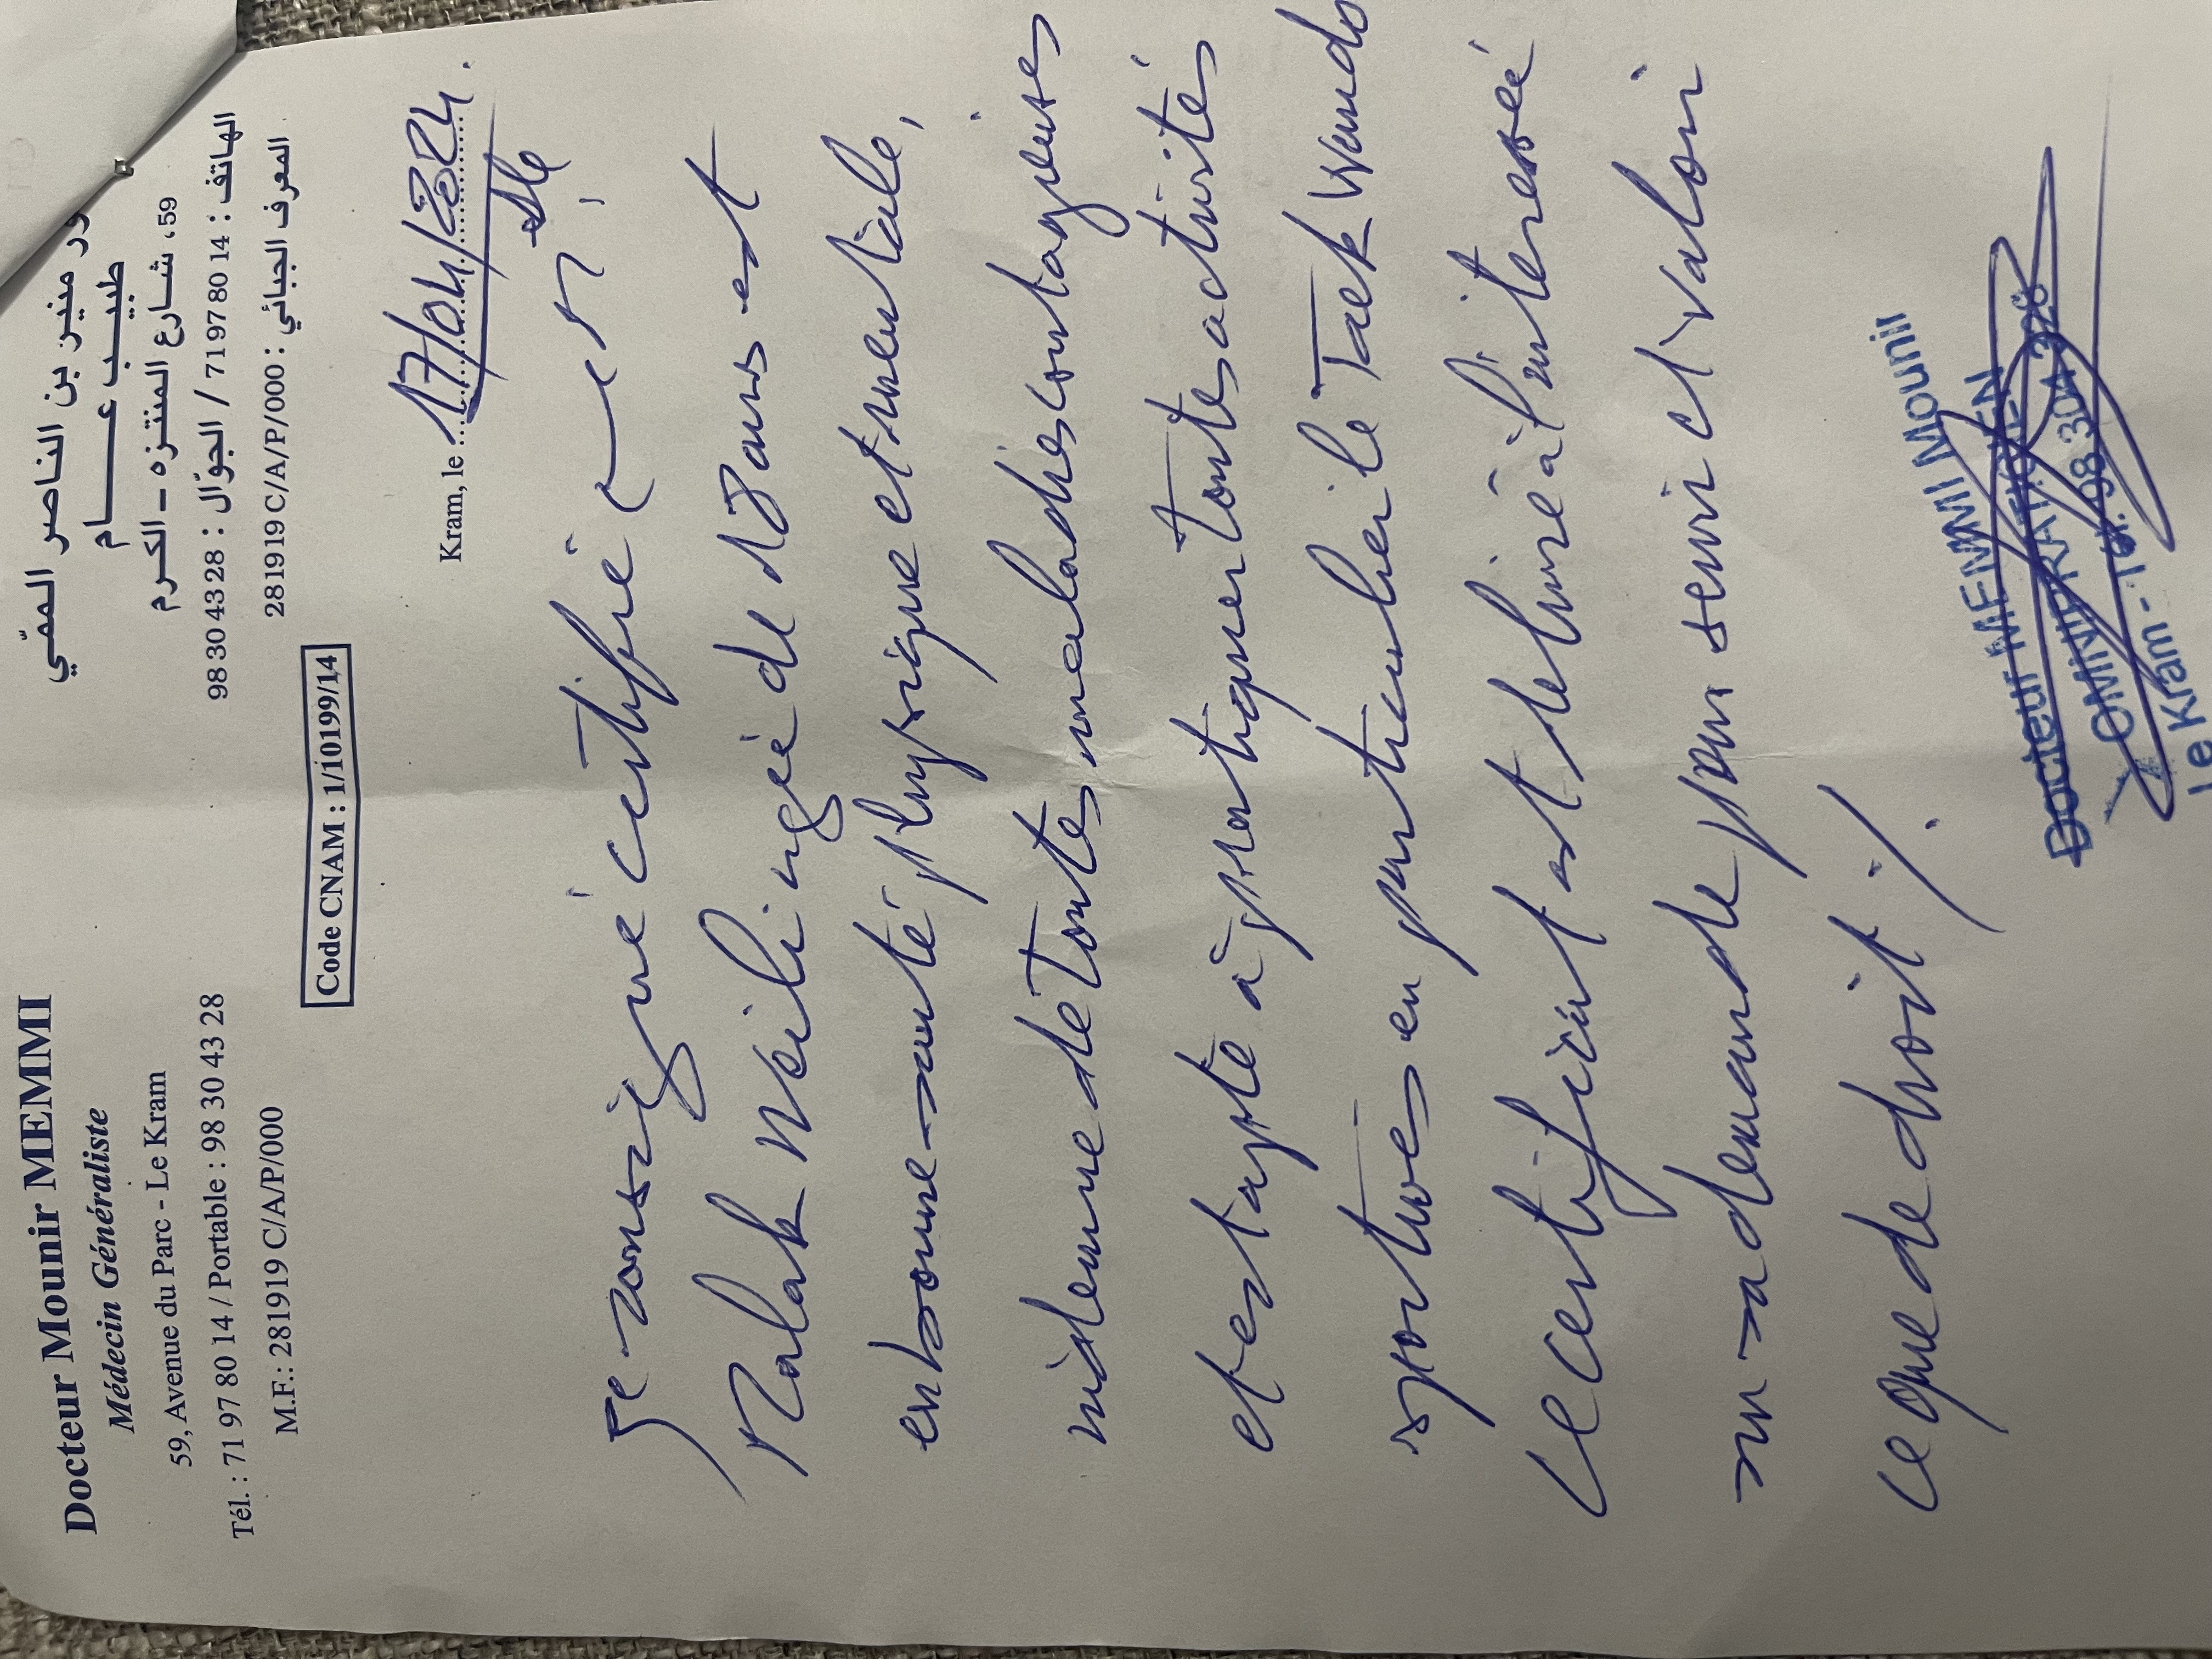 Docteur Mounir MEMMI
Médecin Généraliste
59, Avenue du Parc - Le Kram
Tél. : 71 97 80 14 / Portable : 98 30 43 28
M.F.: 281919 C/A/P/000
ور منير بن الناصر الممّي
طبيب عــــام
59، شارع المنتزه - الكرم
الهاتف : 71 97 80 14 / الجوّال : 98 30 43 28
المعرف الجبائي : 281919 C/A/P/000
Code CNAM : 1/10199/14
Kram, le 17/04/2024.
Je sousigné certifie que elle
Malak Weili agée de 18 ans est
en bonne santé physique et mentale,
indemne de toutes maladies contagieuses
et est apte à pratiquer toutes activités
sportives en particulier le Taek Wando
Le certificat est delivré à l'interessée
sur sa demande pour servir et valoir
ce que de droit ./.
Docteur MEMMI Mounir
OMNIPRATICIEN
Le Kram - Tél. 98 304 328